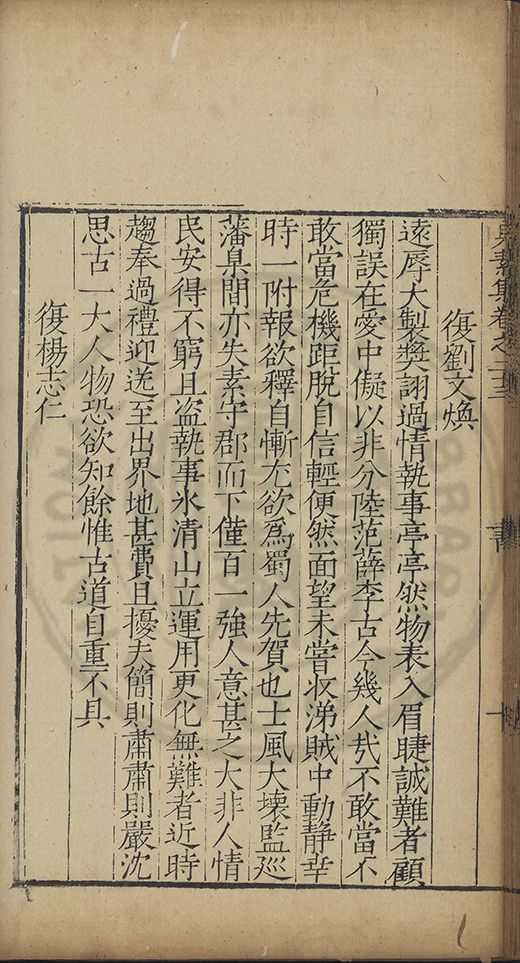 復劉文煥
遠辱大製獎詡過情執事亭亭然物表入眉睫誠難者顧
獨誤在愛中儗以非分陸范薛李古今幾人哉不敢當不
敢當危機距脫自信輕便然面望未嘗收涕賊中動靜幸
時一附報欲釋自慚尤欲為蜀人先賀也士風大壞監廵
藩臬間亦失素守郡而下僅百一強人意甚之大非人情
民安得不窮且盗執事氷清山立運用更化無難者近時
趨奉過禮迎送至出界地甚費且擾夫簡則肅肅則嚴沈
思古一大人物恐欲知餘惟古道自重不具
復楊志仁